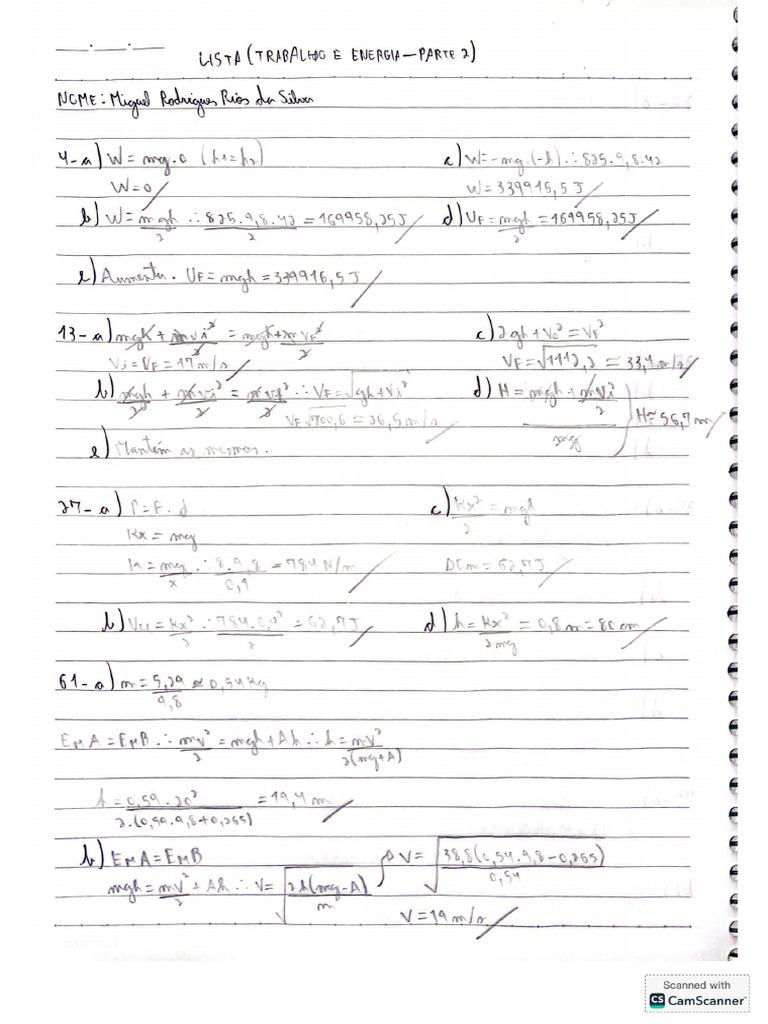 LISTA (TRABALHO E ENERGIA—PARTE 2)
NOME: Miguel Rodrigues Rios da Silva
4-a) W = mg.0 (h1=h2)
W=0
c) W=-mg.(-h) ∴ 825.9,8.42
W=339915,5 J
b) W=mgh/2 ∴ 825.9,8.42/2 = 169958,25J
d) UF=mgh/2 = 169958,25J
e) Aumenta. UF=mgh=339916,5J
13-a) mgh + mvi²/2 = mgh + mvF²/2
Vi=VF=17m/s
c) 2gh+Vo²=VF²
VF=√1112,2 ≅ 33,4 m/s
b) mgh/2 + mvi²/2 = mvf²/2 ∴ VF=√gh+Vi²
VF√700,6 ≅ 26,5m/s
d) H = mgh + mvi²/2 / mg } H≅56,7m
e) Mantém as mesmas.
27-a) P=F.d
Kx=mg
K=mg/x ∴ 8.9,8/0,1 = 784 N/m
c) Kx²/2 = mgh
DEm=62,7J
b) Vel=Kx²/2 ∴ 784.0,4²/2 = 62,7J
d) h=Kx²/2mg = 0,8m=80cm
61-a) m=5,29/9,8 ≅ 0,54Kg
EMA=EMB ∴ mv²/2 = mgh+Ah ∴ h=mv²/2(mg+A)
h=0,54.20²/2.(0,54.9,8+0,265) = 19,4m
b) EMA=EMB
mgh=mv²/2 + Ah ∴ V=√2h(mg-A)/m
V=√38,8(0,54.9,8-0,265)/0,54
V=19m/s
Scanned with
CS CamScanner